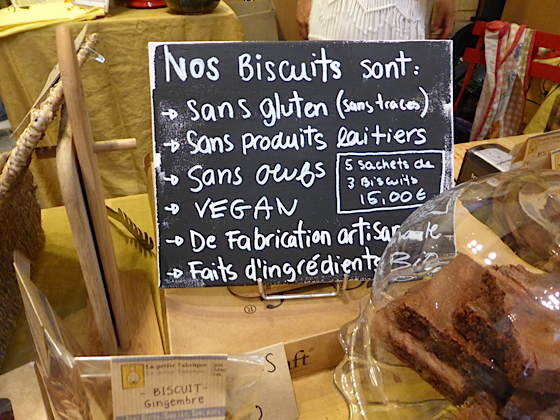 Nos Biscuits sont:
→ sans gluten (sans traces)
→ Sans produits laitiers
→ Sans oeufs
→ VEGAN
→ De Fabrication artisanale
→ Faits d'ingrédients Bio
5 Sachets de
3 Biscuits
15,00€
La petite Fabrique
- BISCUIT -
Gingembre